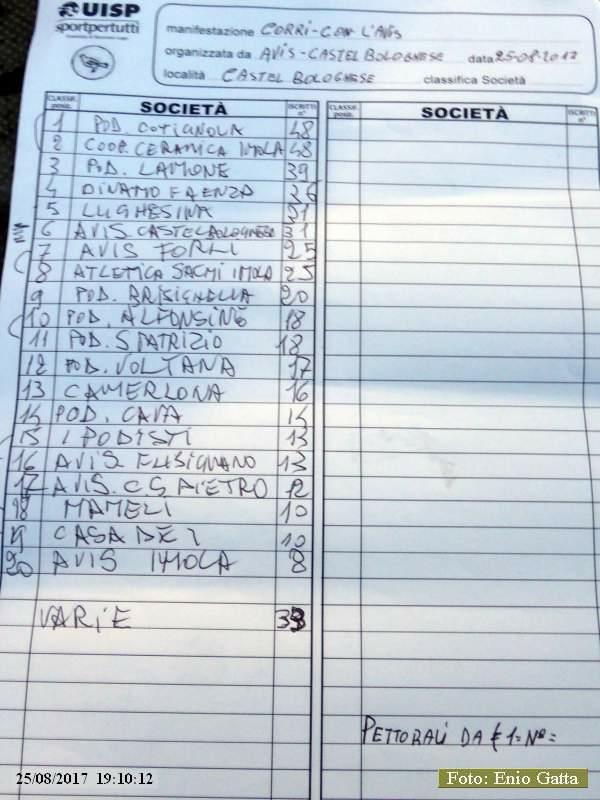 UISP
sportpertutti
manifestazione CORRI-CON L'AVIS
organizzata da AVIS-CASTEL BOLOGNESE data 25-08-2017
località CASTEL BOLOGNESE classifica Società
CLASSIF. posiz. SOCIETÀ ISCRITTI n° CLASSIF. posiz. SOCIETÀ ISCRITTI n°
1 POD. COTIGNOLA 48
2 COOP. CERAMICA IMOLA 48
3 POD. LAMONE 39
4 DINAMO FAENZA 36
5 LUGHESINA 31
6 AVIS CASTELBOLOGNESE 31
7 AVIS FORLI 25
8 ATLETICA SACMI IMOLA 25
9 POD. BRISIGHELLA 20
10 POD. ALFONSINE 18
11 POD. S PATRIZIO 18
12 POD. VOLTANA 17
13 CAMERLONA 16
14 POD. CAVA 14
15 I PODISTI 13
16 AVIS FUSIGNANO 13
17 AVIS. C.S. PIETRO 12
18 MAMELI 10
19 CASA DEI 10
20 AVIS IMOLA 8
VARIE 33
PETTORALI DA € 1= N°=
25/08/2017 19:10:12
Foto: Enio Gatta